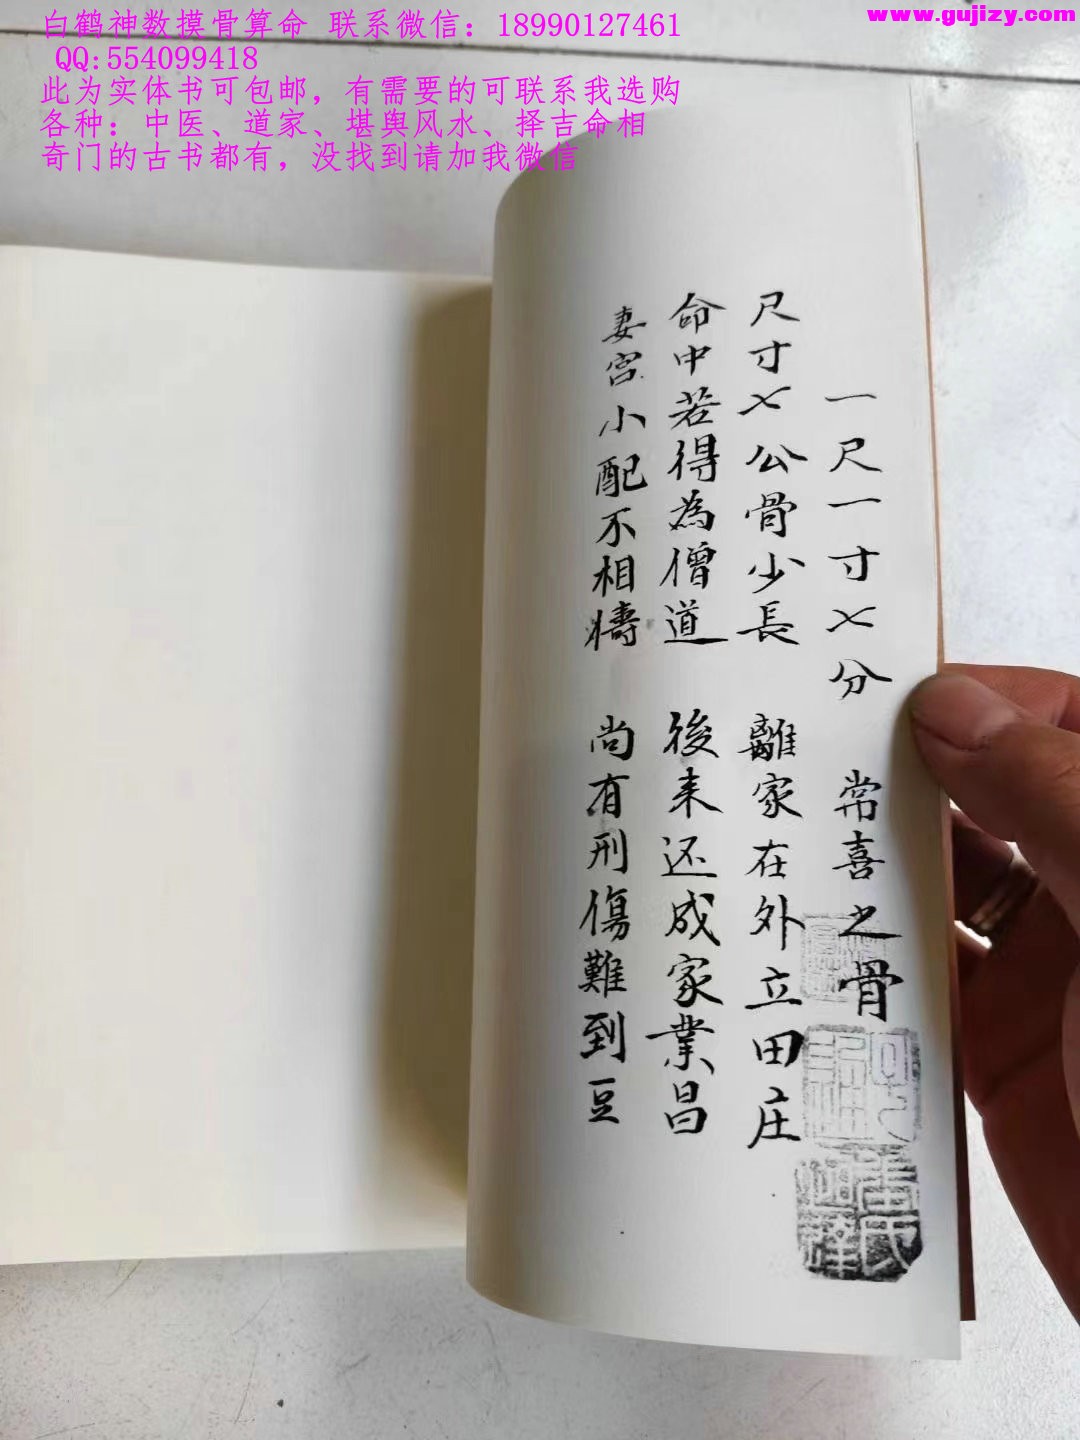 白鹤神数摸骨算命 联系微信：18990127461
QQ:554099418
此为实体书可包邮，有需要的可联系我选购
各种：中医、道家、堪舆风水、择吉命相
奇门的古书都有，没找到请加我微信
www.gujizy.com
一尺一寸七分 常喜之骨
尺寸七公骨少長 離家在外立田庄
命中若得為僧道 後来还成家業昌
妻宫小配不相 尚有刑傷難到豆